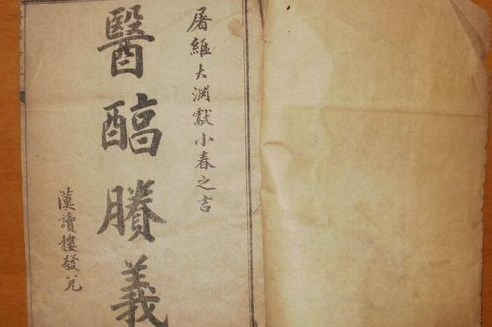 屠維大淵獻小春之吉
醫醕賸義
漢讀樓發兌